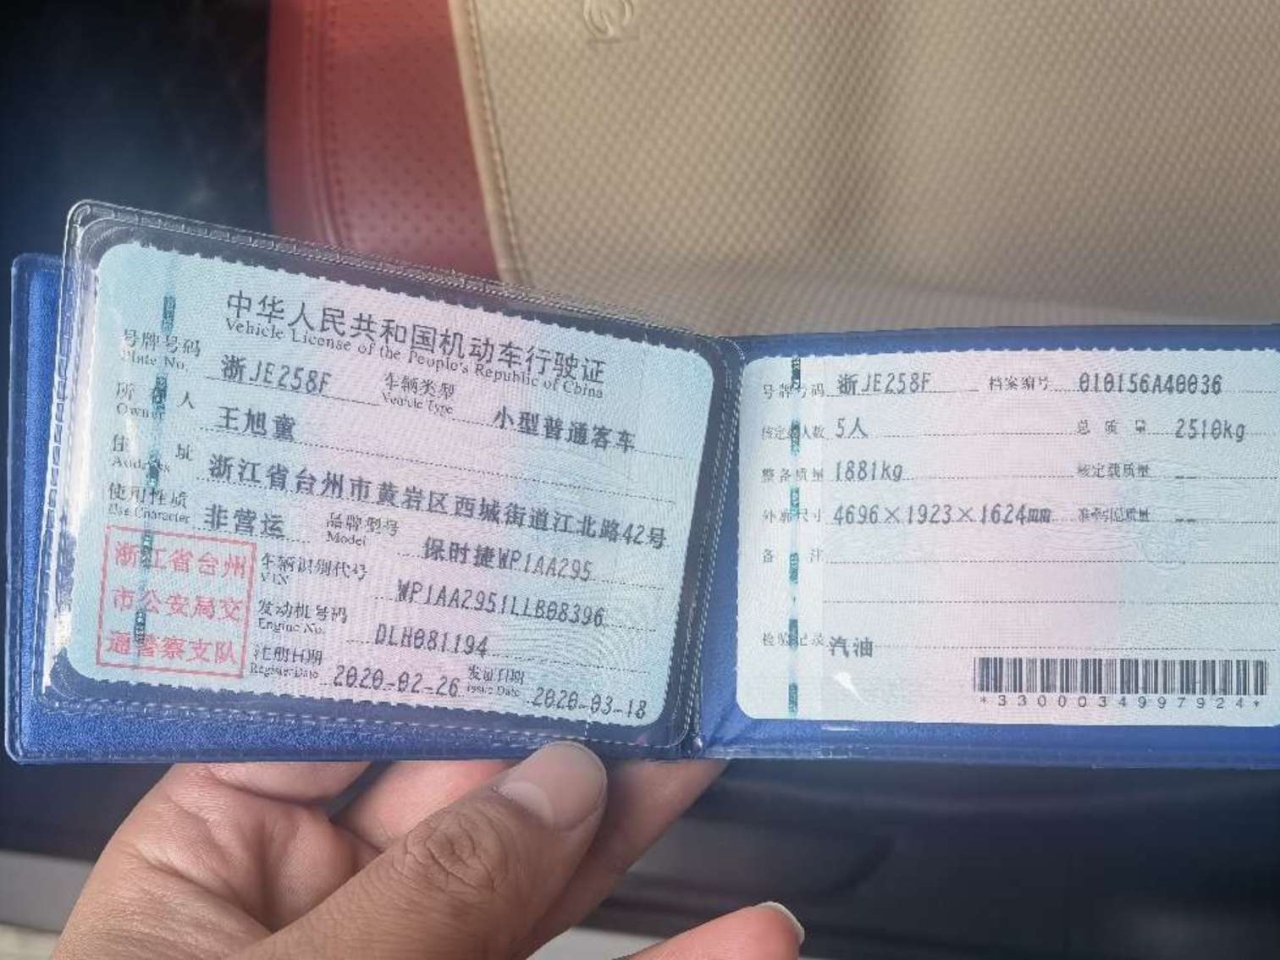 中华人民共和国机动车行驶证
Vehicle License of the People's Republic of China
号牌号码 浙JE258F 车辆类型 小型普通客车
Plate No. Vehicle Type
所有人 王旭童
Owner
住址 浙江省台州市黄岩区西城街道江北路42号
Address
使用性质 非营运 品牌型号 保时捷WP1AA295
Use Character Model
浙江省台州
市公安局交
通警察支队
车辆识别代号 WP1AA2951LLB08396
VIN
发动机号码 DLH081194
Engine No.
注册日期 2020-02-26 发证日期 2020-03-18
Register Date Issue Date
号牌号码 浙JE258F 档案编号 010156A40036
核定载人数 5人 总质量 2510kg
整备质量 1881kg 核定载质量 --
外廓尺寸 4696×1923×1624mm 准牵引总质量 --
备注
检验记录 汽油
*3300034997924*